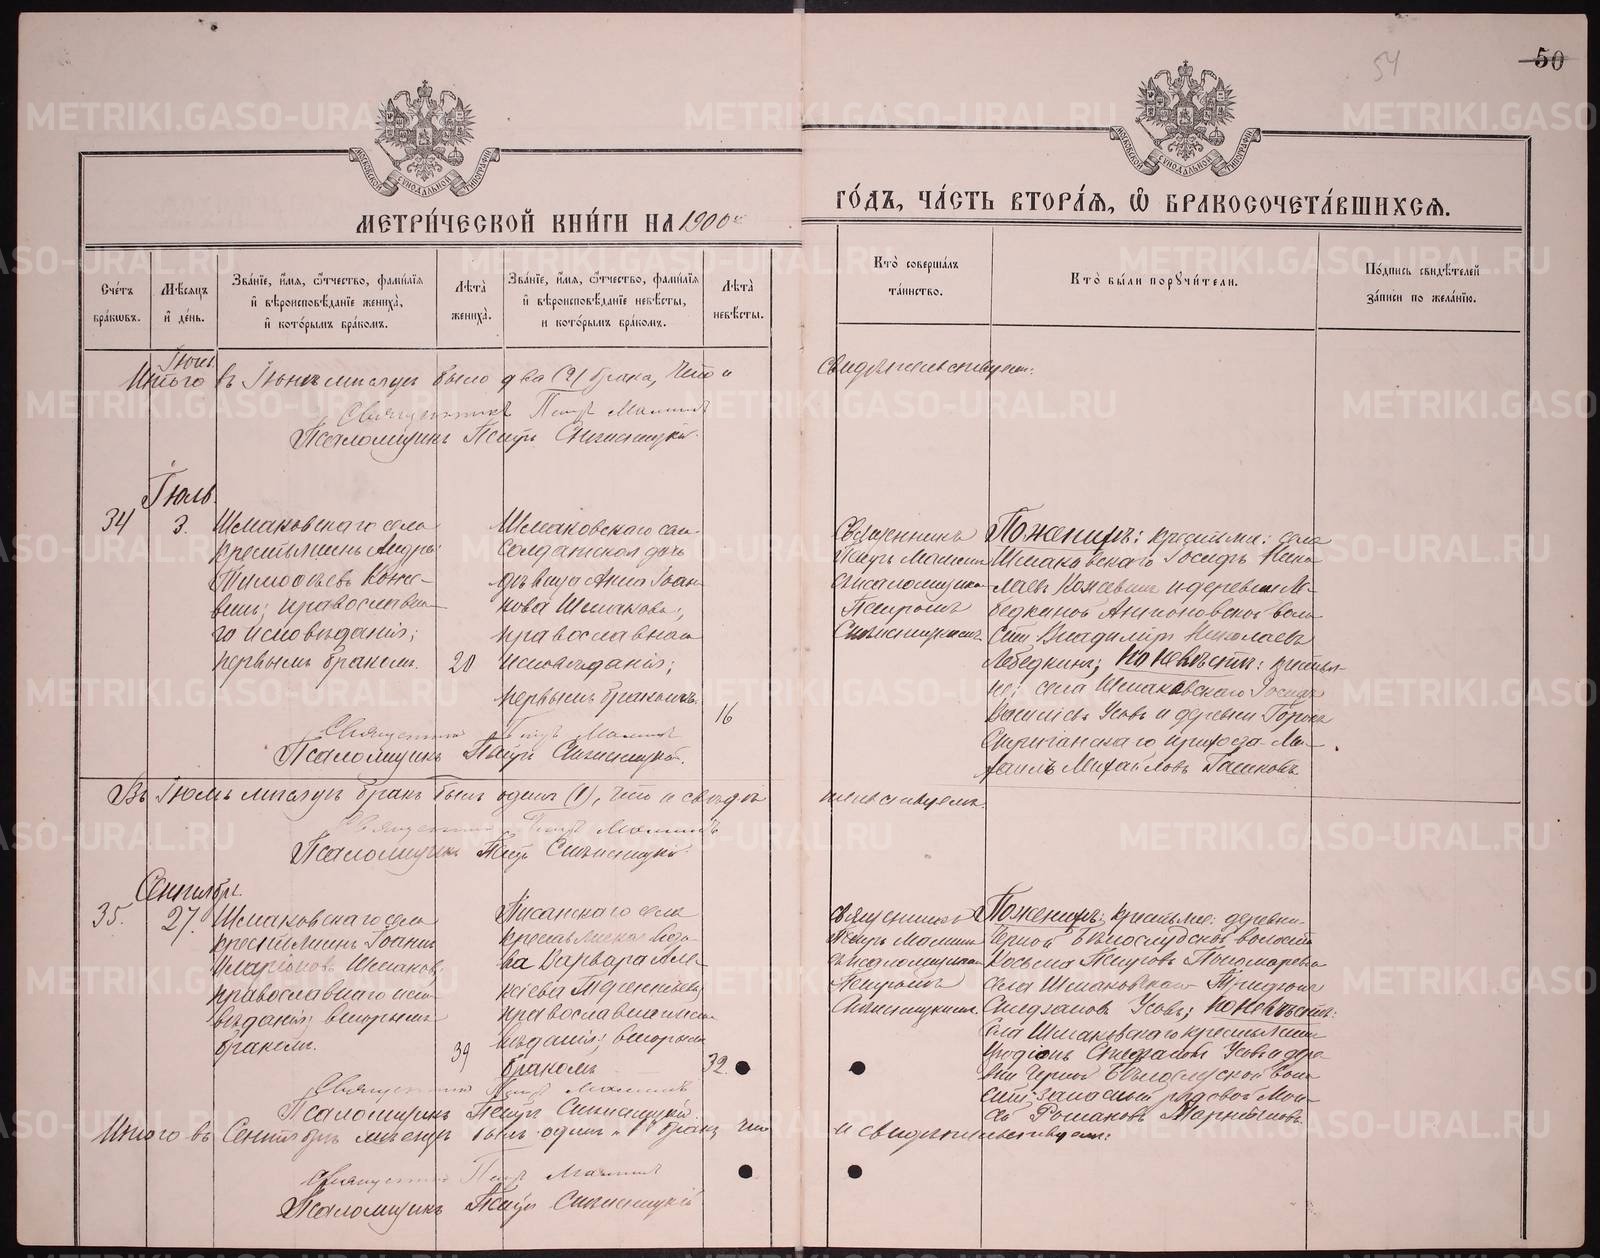 54
50
МОСКОВСКОЙ СѴНОДАЛЬНОЙ ТИПОГРАФІИ
МОСКОВСКОЙ СѴНОДАЛЬНОЙ ТИПОГРАФІИ
МЕТРИ́ЧЕСКОЙ КНИ́ГИ НА 1900й
ГО́ДЪ, ЧА́СТЬ ВТОРА́Ѧ, Ѽ БРАКОСОЧЕТА́ВШИХСѦ.
Сче́тъ бра́кѡвъ.
Мѣ́сѧцъ и҆ де́нь.
Зва́нїе, и҆́мѧ, ѻ҆́тчество, фами́лїѧ и҆ вѣроисповѣ́данїе жениха̀, и҆ кото́рымъ бра́комъ.
Лѣ́та жениха̀.
Зва́нїе, и҆́мѧ, ѻ҆́тчество, фами́лїѧ и҆ вѣроисповѣ́данїе невѣ́сты, и҆ кото́рымъ бра́комъ.
Лѣ́та невѣ́сты.
Кто̀ соверша́лъ та́инство.
Кто̀ бы́ли порꙋчи́тели.
По́дпись свидѣ́телей за́писи по жела́нїю.
Итого въ Іюнѣ мѣсяцѣ было два (2) брака, что и
свидѣтельствуемъ:
Священникъ Петръ
Псаломщикъ Петръ
Іюль.
34
3.
Шмаковскаго села
крестьянинъ Андрей
Тимофеевъ Коже-
винъ; православна-
го исповѣданія;
первымъ бракомъ.
20
Шмаковскаго села
солдатская дочь
дѣвица Анна Іоан-
нова Шмакова;
православнаго
исповѣданія;
первымъ бракомъ.
16
Священникъ
Петръ
съ псаломщикомъ
Петромъ
По женихѣ: крестьяне: села
Шмаковскаго Іосифъ Нико-
лаевъ Кожевинъ и деревни Ле-
бедкиной Антоновской воло-
сти Владиміръ Николаевъ
Лебедкинъ; по невѣстѣ: крестья-
не: села Шмаковскаго Іосифъ
Васильевъ Усовъ и деревни
прихода Ми-
хаилъ Михайловъ
Священникъ Петръ
Псаломщикъ Петръ
Въ Іюлѣ мѣсяцѣ бракъ былъ одинъ (1), что и свидѣ-
тельствуемъ.
Священникъ Петръ
Псаломщикъ Петръ
Сентябрь.
35.
27.
Шмаковскаго села
крестьянинъ Іоаннъ
Иларіоновъ Шмаковъ;
православнаго испо-
вѣданія; вторымъ
бракомъ.
39
Писанскаго села
крестьянская вдо-
ва Варвара Але-
ксіева
православнаго испо-
вѣданія; вторымъ
бракомъ.
32.
Священникъ
Петръ
съ псаломщикомъ
Петромъ
По женихѣ: крестьяне: деревни
Черной Бѣлослудской волости
Косьма Петровъ Пономаревъ
села Шмаковскаго
Стефановъ Усовъ; по невѣстѣ:
села Шмаковскаго крестьянинъ
Родіонъ Стефановъ Усовъ и дерев-
ни Черной Бѣлослудской воло-
сти запасный рядовой
Романовъ
Священникъ Петръ
Псаломщикъ Петръ
Итого въ Сентябрѣ мѣсяцѣ былъ одинъ "1" бракъ, что
и свидѣтельствуемъ:
Священникъ Петръ
Псаломщикъ Петръ
METRIKI.GASO-URAL.RU